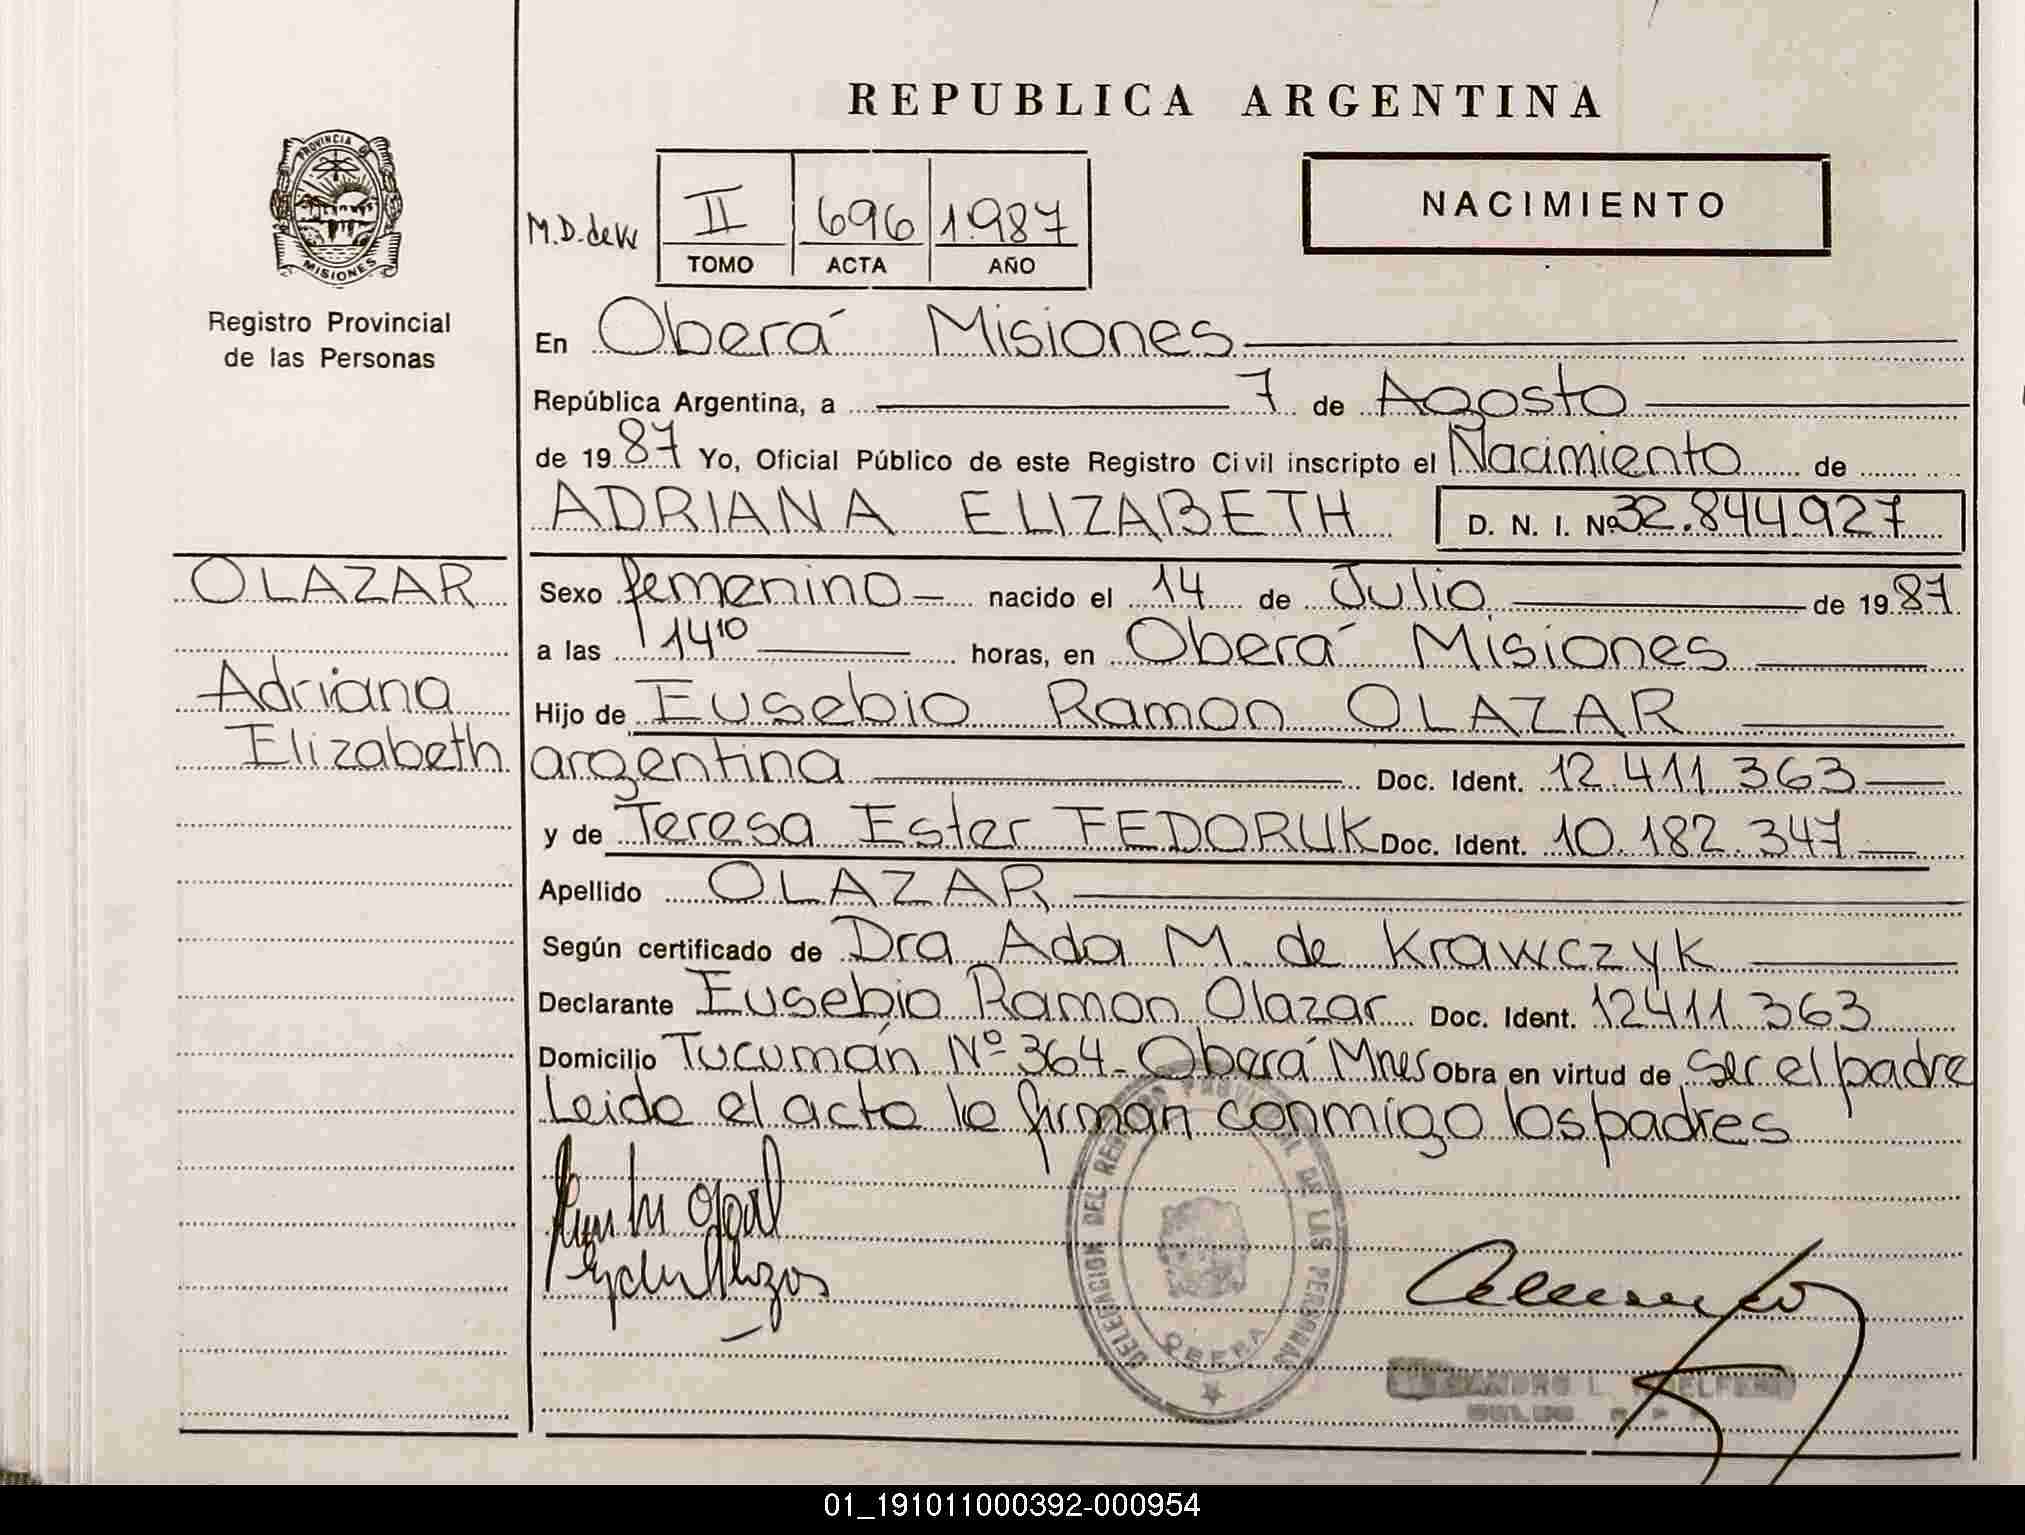 REPUBLICA ARGENTINA
PROVINCIA DE
MISIONES
Registro Provincial
de las Personas
M.D.deK
II 696 1.987
TOMO ACTA AÑO
NACIMIENTO
En Oberá Misiones
República Argentina, a 7 de Agosto
de 1987 Yo, Oficial Público de este Registro Civil inscripto el Nacimiento de
ADRIANA ELIZABETH D. N. I. Nº 32.844.927
OLAZAR
Adriana
Elizabeth
Sexo femenino nacido el 14 de Julio de 1987
a las 14 10 horas, en Oberá Misiones
Hijo de Eusebio Ramon OLAZAR
argentina Doc. Ident. 12.411.363
y de Teresa Ester FEDORUK Doc. Ident. 10.182.347
Apellido OLAZAR
Según certificado de Dra Ada M. de Krawczyk
Declarante Eusebio Ramon Olazar Doc. Ident. 12411.363
Domicilio Tucumán Nº 364 - Oberá Mnes Obra en virtud de ser el padre
Leido el acto lo firman conmigo los padres
DELEGACION DEL REGISTRO PROVINCIAL DE LAS PERSONAS
OBERA
01_191011000392-000954